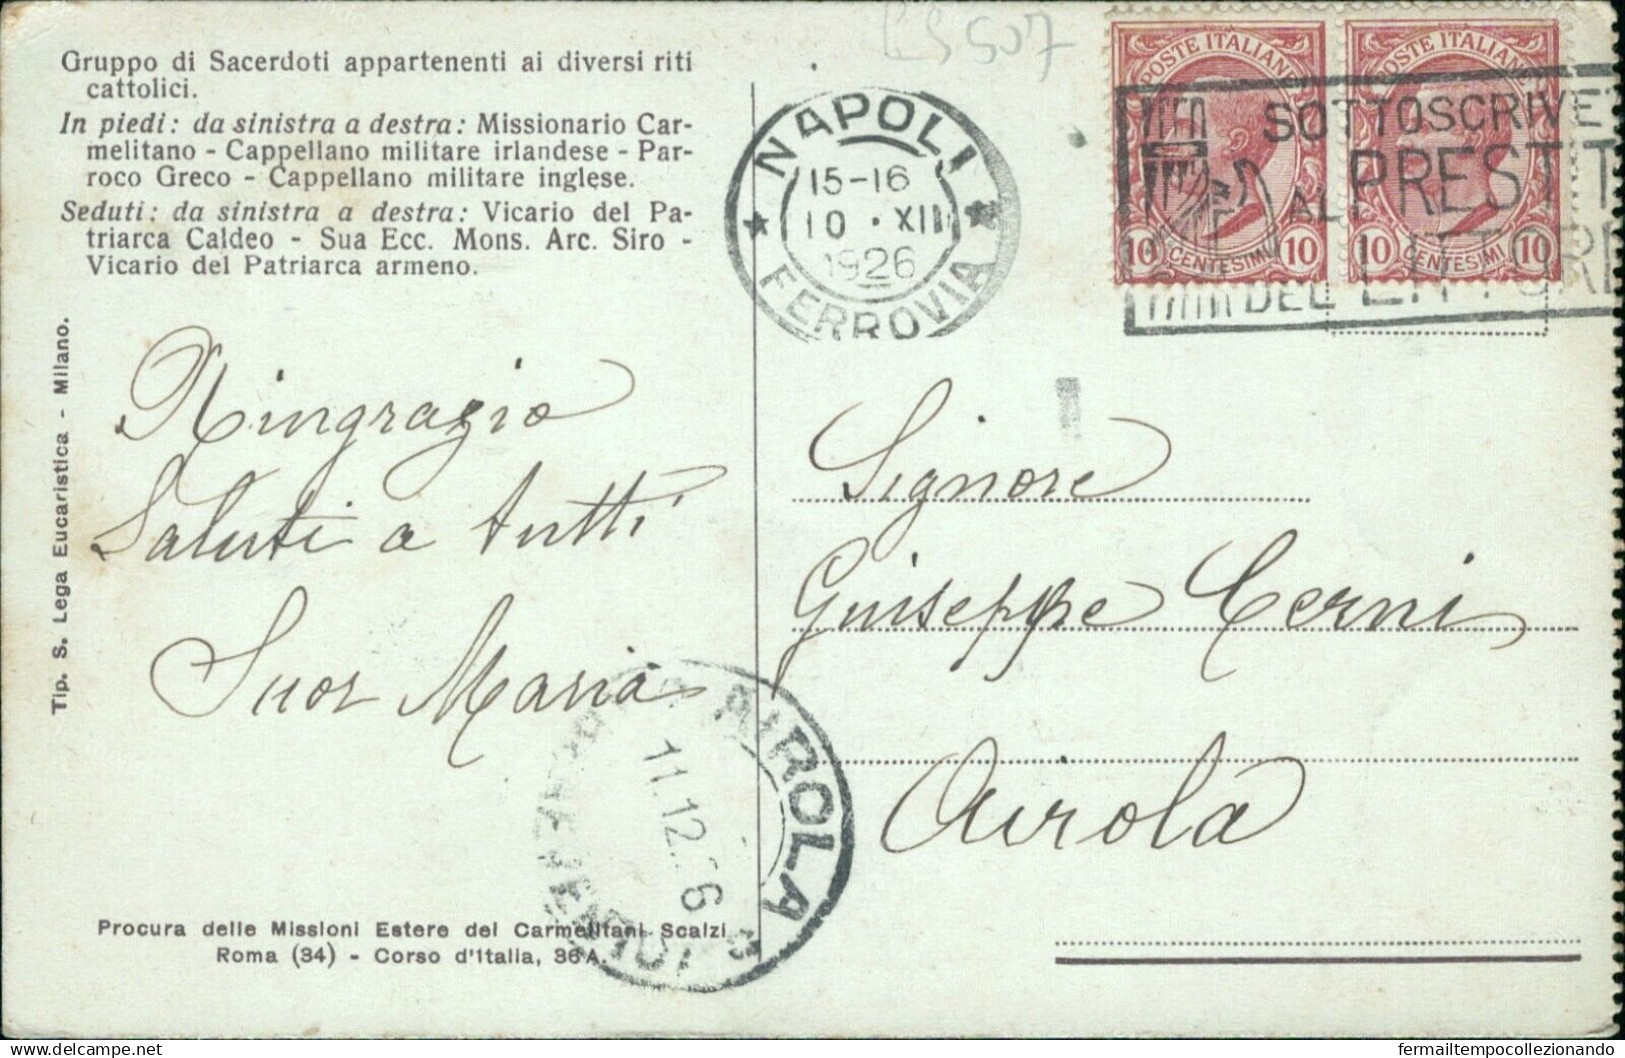 CS 507
Gruppo di Sacerdoti appartenenti ai diversi riti
cattolici.
In piedi: da sinistra a destra: Missionario Car-
melitano - Cappellano militare irlandese - Par-
roco Greco - Cappellano militare inglese.
Seduti: da sinistra a destra: Vicario del Pa-
triarca Caldeo - Sua Ecc. Mons. Arc. Siro -
Vicario del Patriarca armeno.
Tip. S. Lega Eucaristica - Milano.
NAPOLI
15-16
10 · XII
1926
FERROVIA
POSTE ITALIANE
10 CENTESIMI 10
POSTE ITALIANE
10 CENTESIMI 10
SOTTOSCRIVE
AL PRESTIT
DEL LITTORI
Ringrazio
Saluti a tutti
Suor Maria
Signore
Giuseppe Cerni
Airola
AIROLA
11.12.26
Procura delle Missioni Estere dei Carmelitani Scalzi
Roma (34) - Corso d'Italia, 36 A.
delcampe.net
fermailtempocollezionando